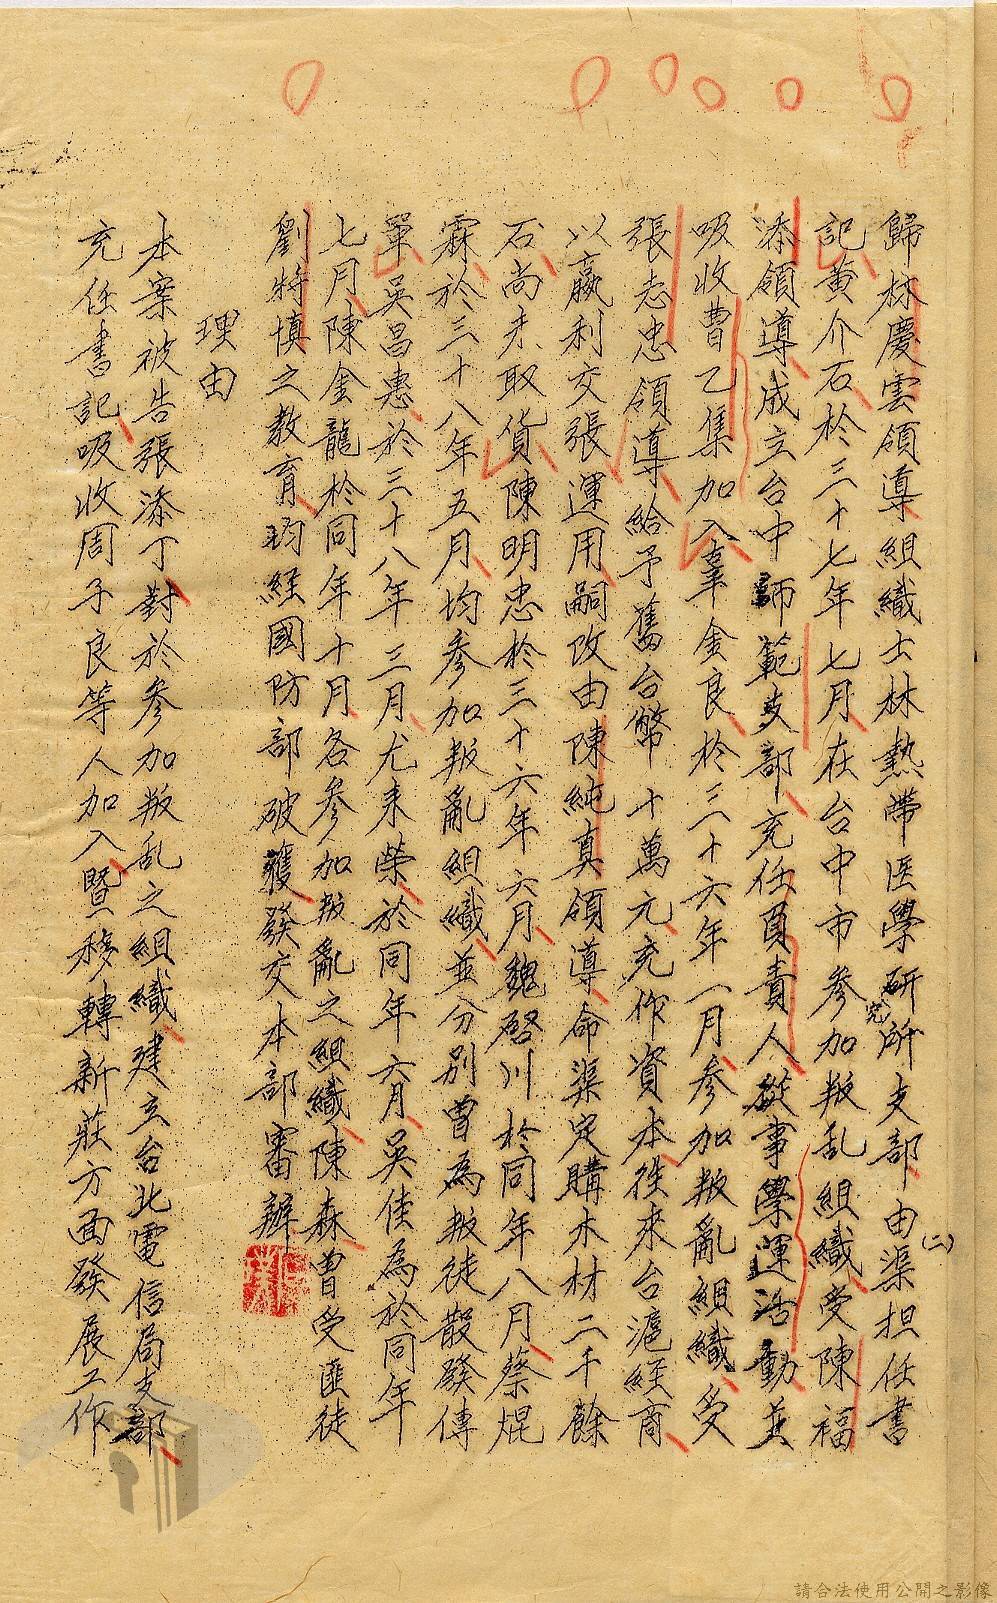 歸林慶雲領導組織士林熱帶医學研究所支部由渠担任書
(二)
記黃介石於三十七年七月在台中市參加叛乱組織受陳福
添領導成立台中師範支部充任負責人從事學運活動並
吸收曹乙集加入辜金良於三十六年一月參加叛亂組織受
張志忠領導給予舊台幣十萬元充作資本往來台滬經商
以贏利交張運用嗣改由陳純真領導命渠定購木材二千餘
石尚未取貨陳明忠於三十六年六月魏啓川於同年八月蔡焜
霖於三十八年五月均參加叛亂組織並分別曾為叛徒散發傳
單吳昌惠於三十八年三月尤來榮於同年六月吳佳為於同年
七月陳金龍於同年十月各參加叛亂之組織陳森曾受匪徒
劉特慎之教育均經國防部破獲發交本部審辦
理由
本案被告張添丁對於參加叛乱之組織建立台北電信局支部
充任書記吸收周子良等人加入暨移轉新莊方面發展工作
請合法使用公開之影像